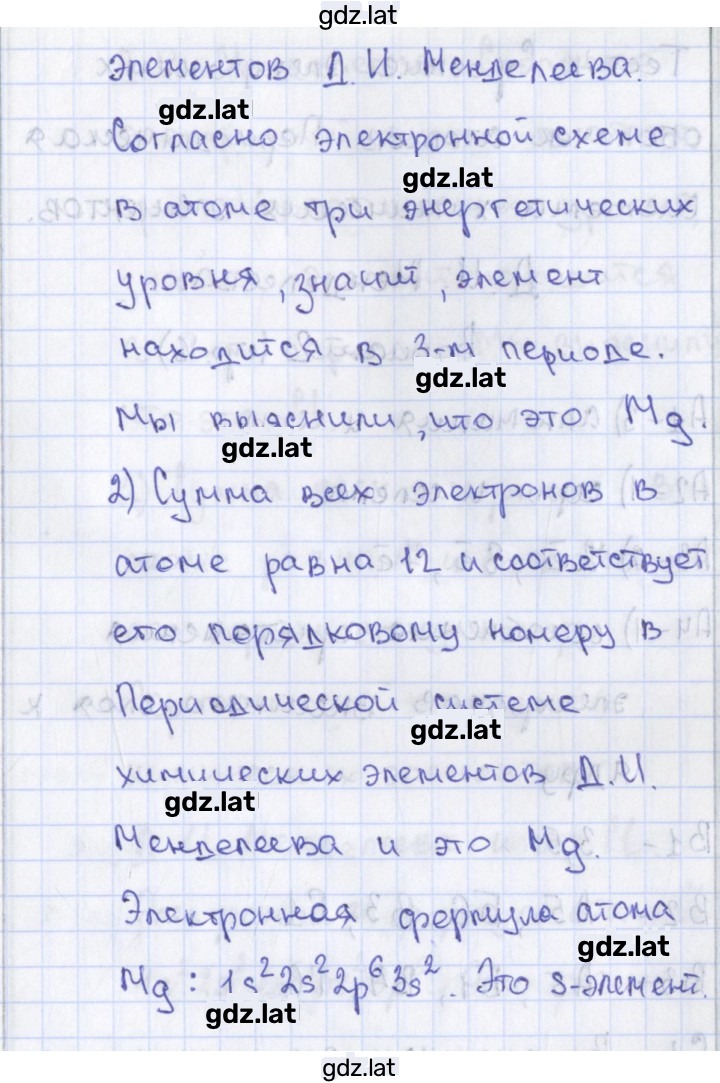 gdz.lat
элементов Д. И. Менделеева.
gdz.lat
Согласно электронной схеме
gdz.lat
в атоме три энергетических
уровня, значит, элемент
находится в 3-м периоде.
gdz.lat
Мы выяснили, что это Mg.
gdz.lat
2) Сумма всех электронов в
атоме равна 12 и соответствует
его порядковому номеру в
Периодической системе
gdz.lat
химических элементов Д. И.
gdz.lat
Менделеева и это Mg.
Электронная формула атома
gdz.lat
Mg : 1s²2s²2p⁶3s². Это s-элемент.
gdz.lat
gdz.lat